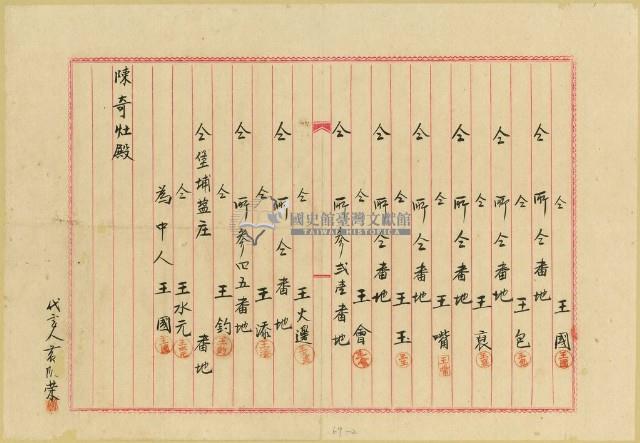 仝 王國
仝 所仝番地
仝 王包
仝 所仝番地
仝 王哀
仝 所仝番地
仝 王嘴
仝 所仝番地
仝 王玉
仝 所仝番地
仝 王會
仝 所參貳壹番地
仝 王火邊
仝 所仝番地
仝 王添
仝 所參四五番地
仝 王釣
仝堡埔盐庄 番地
仝 王水元
為中人王國
陳奇灶殿
代言人 榮
國史館臺灣文獻館
TAIWAN HISTORICA
69-2